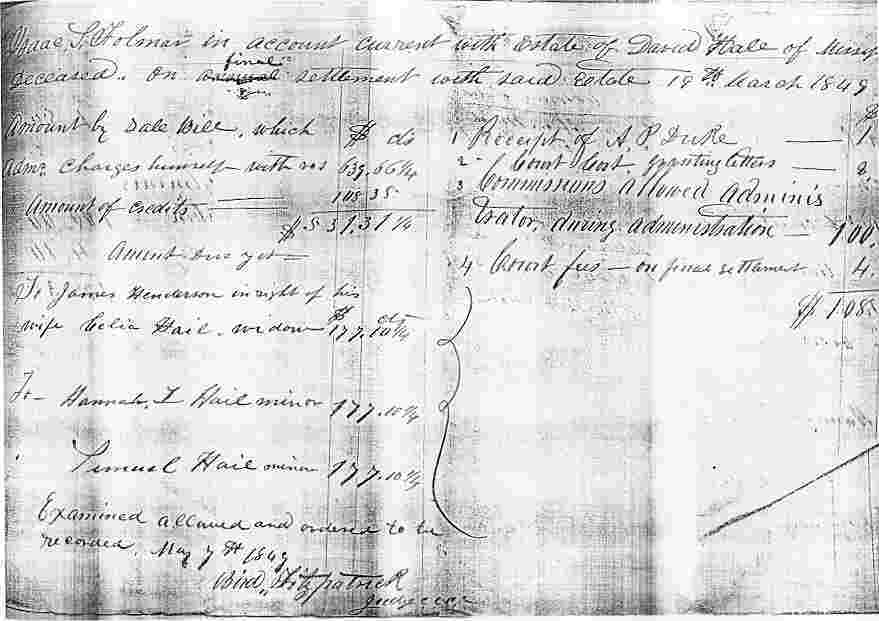 Isaac S Holmar in account current with Estate of David Hale of
deceased. on final settlement with said Estate 19th March 1849
Amount by Sale Bill, which $ cts
Admr. Charges himself with 639.66 1/4
108 35
Amount of credits
$531,31 1/4
Amount Due yet
To James Henderson in right of his
wife Celia Hail. widow $ cts 177.10 1/4
To Hannah. T Hail minor 177.10 1/4
Lemual Hail minor 177.10 1/4
Examined allowed and ordered to be
recorded. May 7th 1849
Bird Fitzpatrick
1 Receipt of A. P. Duke 1
2 Court Cost. granting letters 2.
3 Commissions allowed adminis
trator, during administration 100.
4 Court fees on final settlement 4.
$ 108